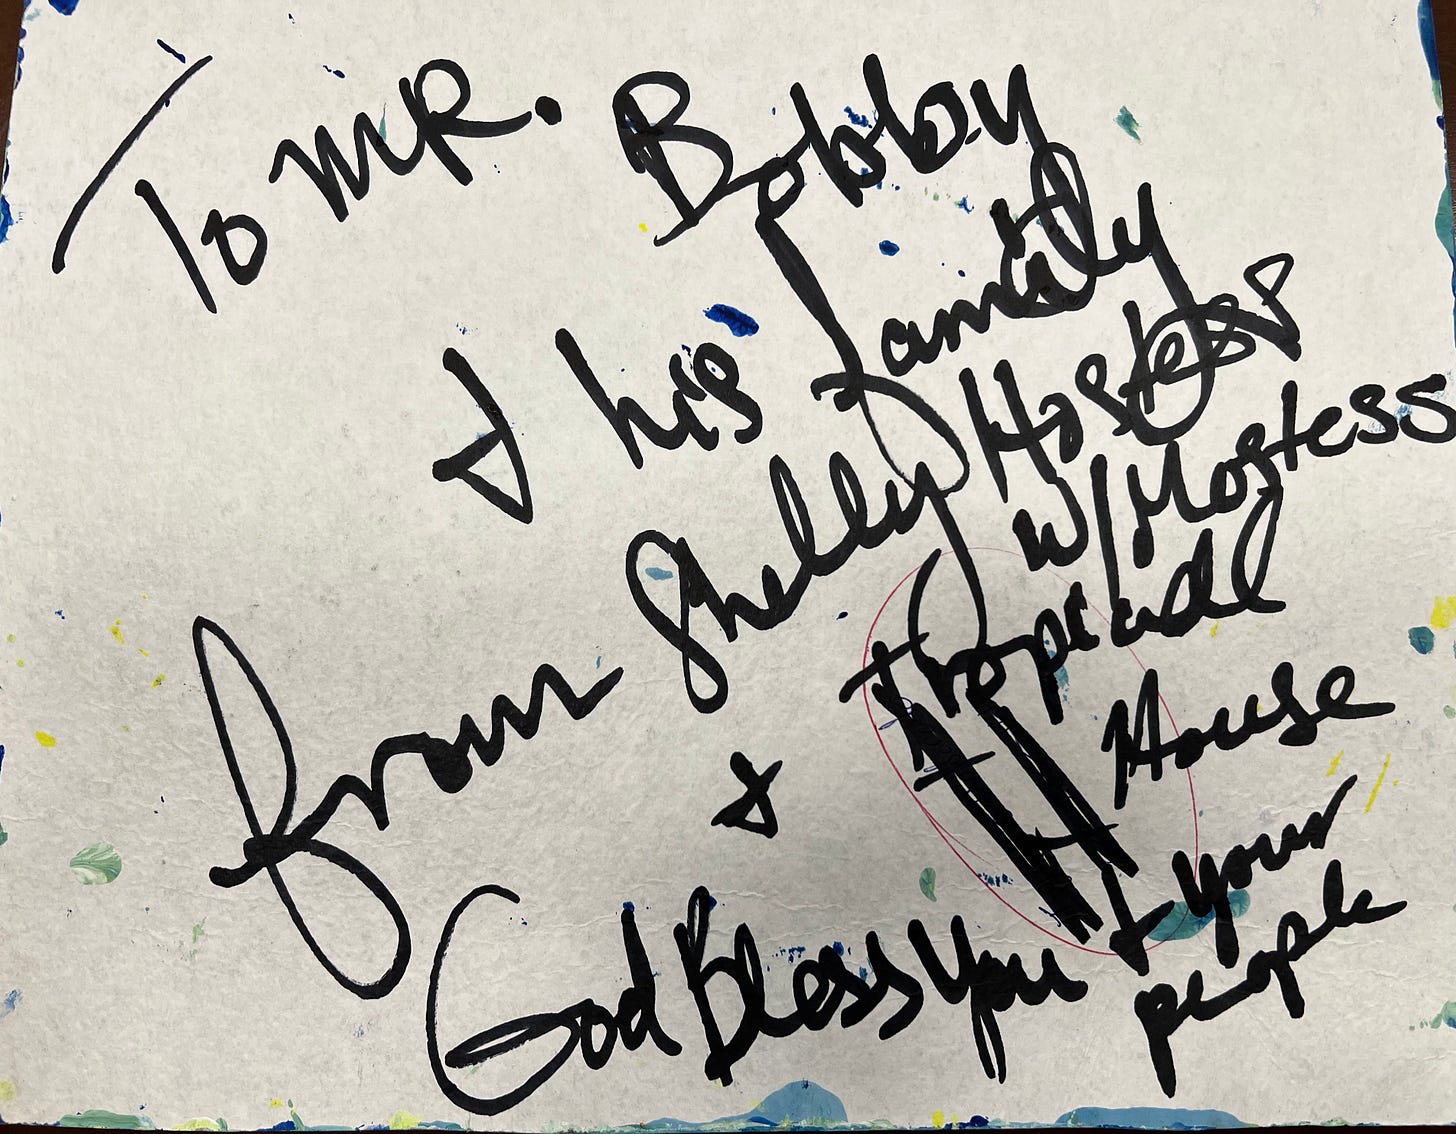 To MR. Bobby
& his family
from Shelly Hostess
w/ Mostess
&
House
God Bless You & your
people